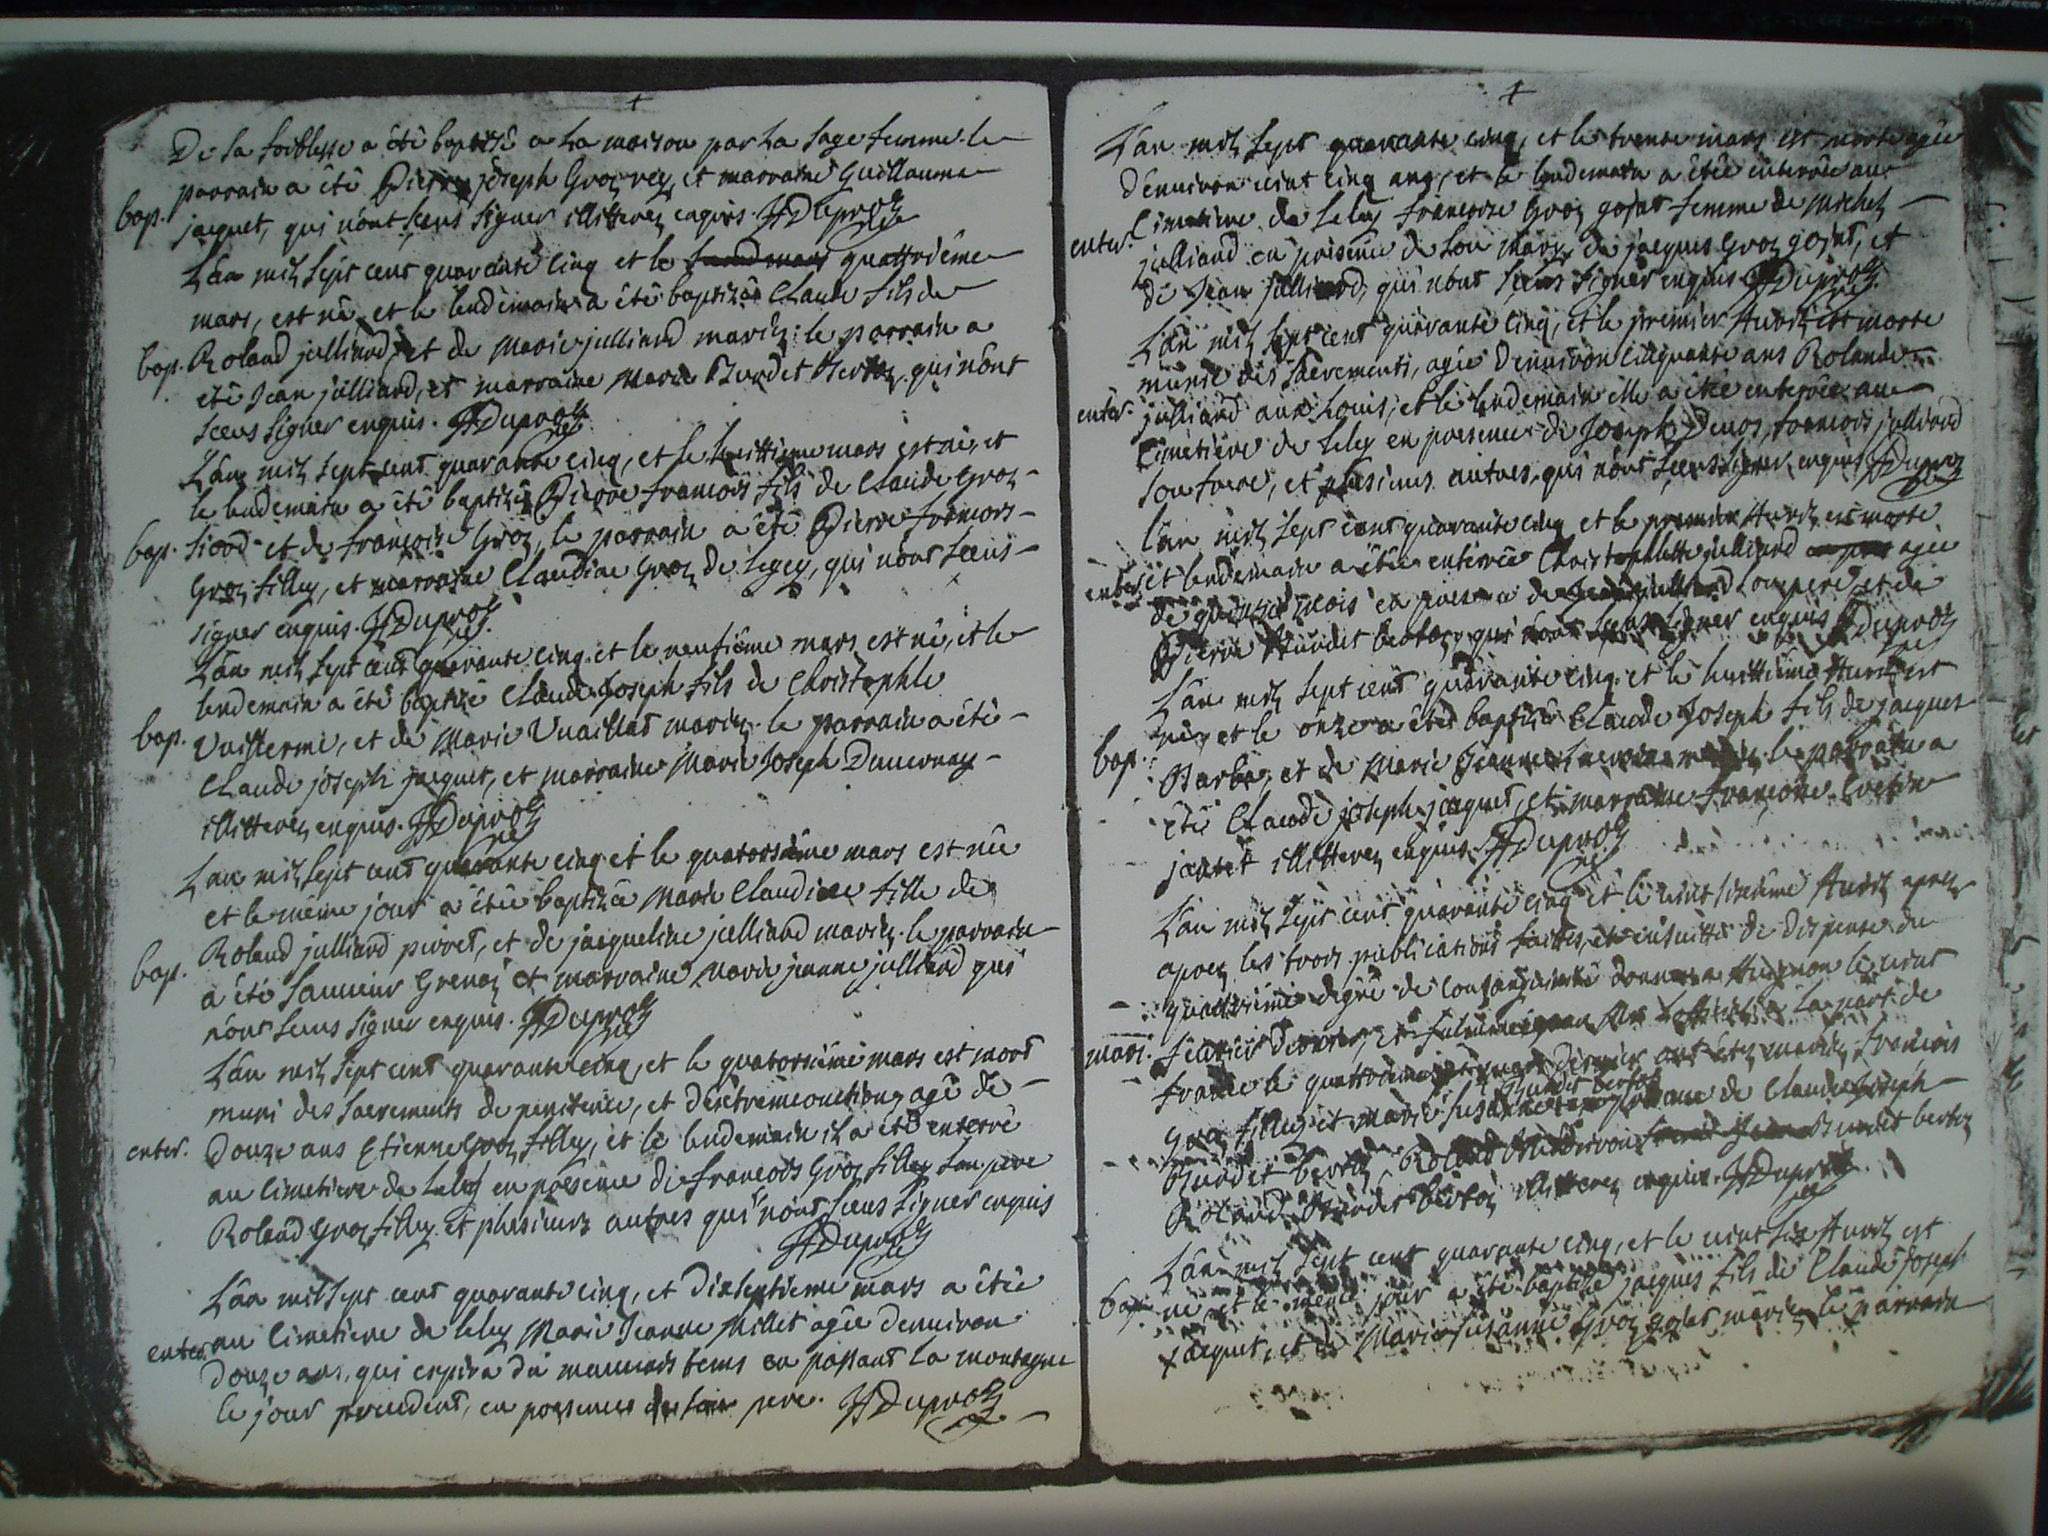 De sa foiblesse a été baptisé a la maison par la sage femme. le
bap. parrain a été Pierre joseph Groz rey, et marraine Guillauma
jacquet, qui n'ont sceus signer illitterez enquis. JJDuproz
L'an mil sept cent quarante cinq et le quattriéme
mars, est né et le lendemain a été baptizé Claude fils de
bap. Roland julliard, et de Marie julliard mariez. le parrain a
été Jean julliard, et marraine Marie Burdet Berton, qui n'ont
sceus signer enquis. JJDuproz
L'an mil sept cent quarante cinq, et le huittieme mars est né, et
le lendemain a été baptizé Pierre francois fils de Claude Groz
bap. et de francoise Groz, le parrain a été Pierre francois
Groz filley, et marraine Claudine Groz de Legey, qui n'ont sceus
signer enquis. JJDuproz
L'an mil sept cent quarante cinq et le neufiéme mars est né, et le
lendemain a été baptizé Claude Joseph fils de Christophle
bap. Vuillerme, et de Marie Vuaillat mariez. le parrain a été
Claude joseph jacquet, et marraine Marie Joseph Dunervay
illitterez enquis. JJDuproz
L'an mil sept cent quarante cinq et le quatorsiéme mars est née
et le même jour a étée baptizée Marie Claudine fille de
bap. Roland julliard perret, et de jacqueline julliard mariez. le parrain
a été Grenoz et marraine Marie jeanne julliard qui
n'ont sceus signer enquis. JJDuproz
L'an mil sept cent quarante cinq, et le quatorsiéme mars est mort
muni des sacrements de penitence, et d'extreme onction, agé de
enter. Douze ans Etienne Groz filley, et le lendemain il a été enterré
au Cimetiere de Leley en presence de francois Groz filley son pere
Roland Groz filley et plusieurs autres qui n'ont sceus signer enquis
JJDuproz
L'an mil sept cent quarante cinq, et dixseptieme mars a étée
enter. au Cimetiere de Leley Marie Jeanne Millet agée d'environ
Douze ans, qui expira du mauvais tems en passant la montagne
le jour precedent, en presence de son pere. JJDuproz
L'an mil sept quarante cinq, et le trente mars est morte agée
d'environ vint cinq ans, et le lendemain a étée enterrée au
enter. Cimetiere de Leley francoise Groz gojat femme de Michel
julliard en presence de son mary de jacques Groz gojat, et
de Jean julliard, qui n'ont sceus signer enquis. JJDuproz
L'an mil sept cent quarante cinq, et le premier Avril est morte
munie des sacrements, agée d'environ cinquante ans Rolande
enter. julliard aux Louis, et le lendemain elle a étée enterrée au
Cimetiere de Leley en presence de Joseph francois julliard
son frere, et plusieurs autres, qui n'ont sceus signer enquis JJDuproz
L'an mil sept cent quarante cinq et le premier Avril est morte
enter. et lendemain a étée enterrée Christophlette julliard agée
de mois en presence de julliard son pere et de
Pierre Burdet berton, qui n'ont sceus signer enquis JJDuproz
L'an mil sept cent quarante cinq et le huittiéme Avril est
né, et le onze a étée baptizé Claude Joseph fils de jacques
bap. et de Marie Jeanne mariez le parrain a
été Claude joseph jacquet, et marraine francoise
illitterez enquis JJDuproz
L'an mil sept cent quarante cinq et le vint Avril aprez
aprez les trois publications faittes, et ensuitte de dispense du
quattriéme degré de consanguinité donnée a Avignon le vint
mari. fevrier dernier, et l'official la part de
france le dernier ont étés mariez francois
Groz filley et Marie Susanne Burdet berton de Claude Joseph
Burdet berton Roland Burdet berton
Roland Burdet berton illitterez enquis. JJDuproz
L'an mil sept cent quarante cinq, et le vint six Avril est
bap. né et le même jour a été baptizé jacques fils de Claude Joseph
jacquet, et de Marie Susanne Groz gojat mariez le parrain